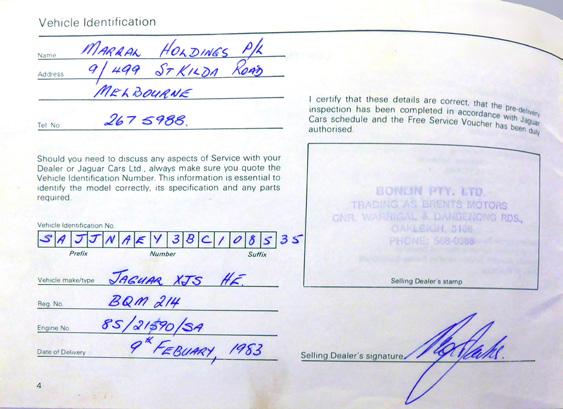 Vehicle Identification
Name MARRAL HOLDINGS P/L
Address 9/499 ST KILDA ROAD
MELBOURNE
Tel. No. 267 5988.
Should you need to discuss any aspects of Service with your
Dealer or Jaguar Cars Ltd., always make sure you quote the
Vehicle Identification Number. This information is essential to
identify the model correctly, its specification and any parts
required.
Vehicle Identification No.
SAJJNAEY3BC108535
Prefix Number Suffix
Vehicle make/type JAGUAR XJS HE.
Reg. No. BQM 214
Engine No. 8S/21590/SA
Date of Delivery 9th FEBUARY, 1983
4
I certify that these details are correct, that the pre-delivery
inspection has been completed in accordance with Jaguar
Cars schedule and the Free Service Voucher has been duly
authorised.
BONLIN PTY. LTD.
TRADING AS BRENTS MOTORS
CNR. WARRIGAL & DANDENONG RDS,
OAKLEIGH, 3166
PHONE: 568-0388
Selling Dealer's stamp
Selling Dealer's signature